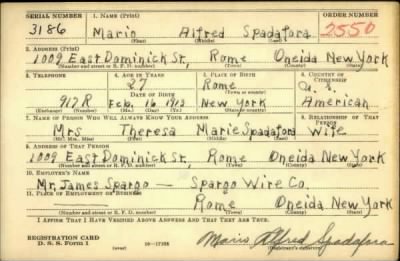 SERIAL NUMBER 1. NAME (Print) ORDER NUMBER
3186 Mario Alfred Spadafora 2550
(First) (Middle) (Last)
2. ADDRESS (Print)
1009 East Dominick St, Rome Oneida New York
(Number and street or R. F. D. number) (Town) (County) (State)
3. TELEPHONE 4. AGE IN YEARS 5. PLACE OF BIRTH 6. COUNTRY OF CITIZENSHIP
27 Rome U. S.
DATE OF BIRTH
917R Feb. 16 1913 New York American
7. NAME OF PERSON WHO WILL ALWAYS KNOW YOUR ADDRESS 8. RELATIONSHIP OF THAT PERSON
Mrs Theresa Marie Spadafora Wife
(Mr., Mrs., Miss) (First) (Middle) (Last)
9. ADDRESS OF THAT PERSON
1009 East Dominick St, Rome Oneida New York
(Number and street or R. F. D. number) (Town) (County) (State)
10. EMPLOYER'S NAME
Mr. James Spargo — Spargo Wire Co.
11. PLACE OF EMPLOYMENT OR BUSINESS
Rome Oneida New York
(Number and street or R. F. D. number) (Town) (County) (State)
I AFFIRM THAT I HAVE VERIFIED ABOVE ANSWERS AND THAT THEY ARE TRUE.
REGISTRATION CARD
D. S. S. Form 1 (over) Mario Alfred Spadafora
(Registrant's signature)